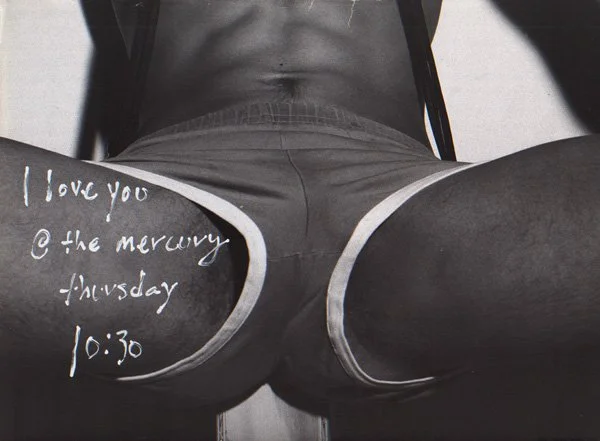 I love you
@ the mercury
thursday
10:30